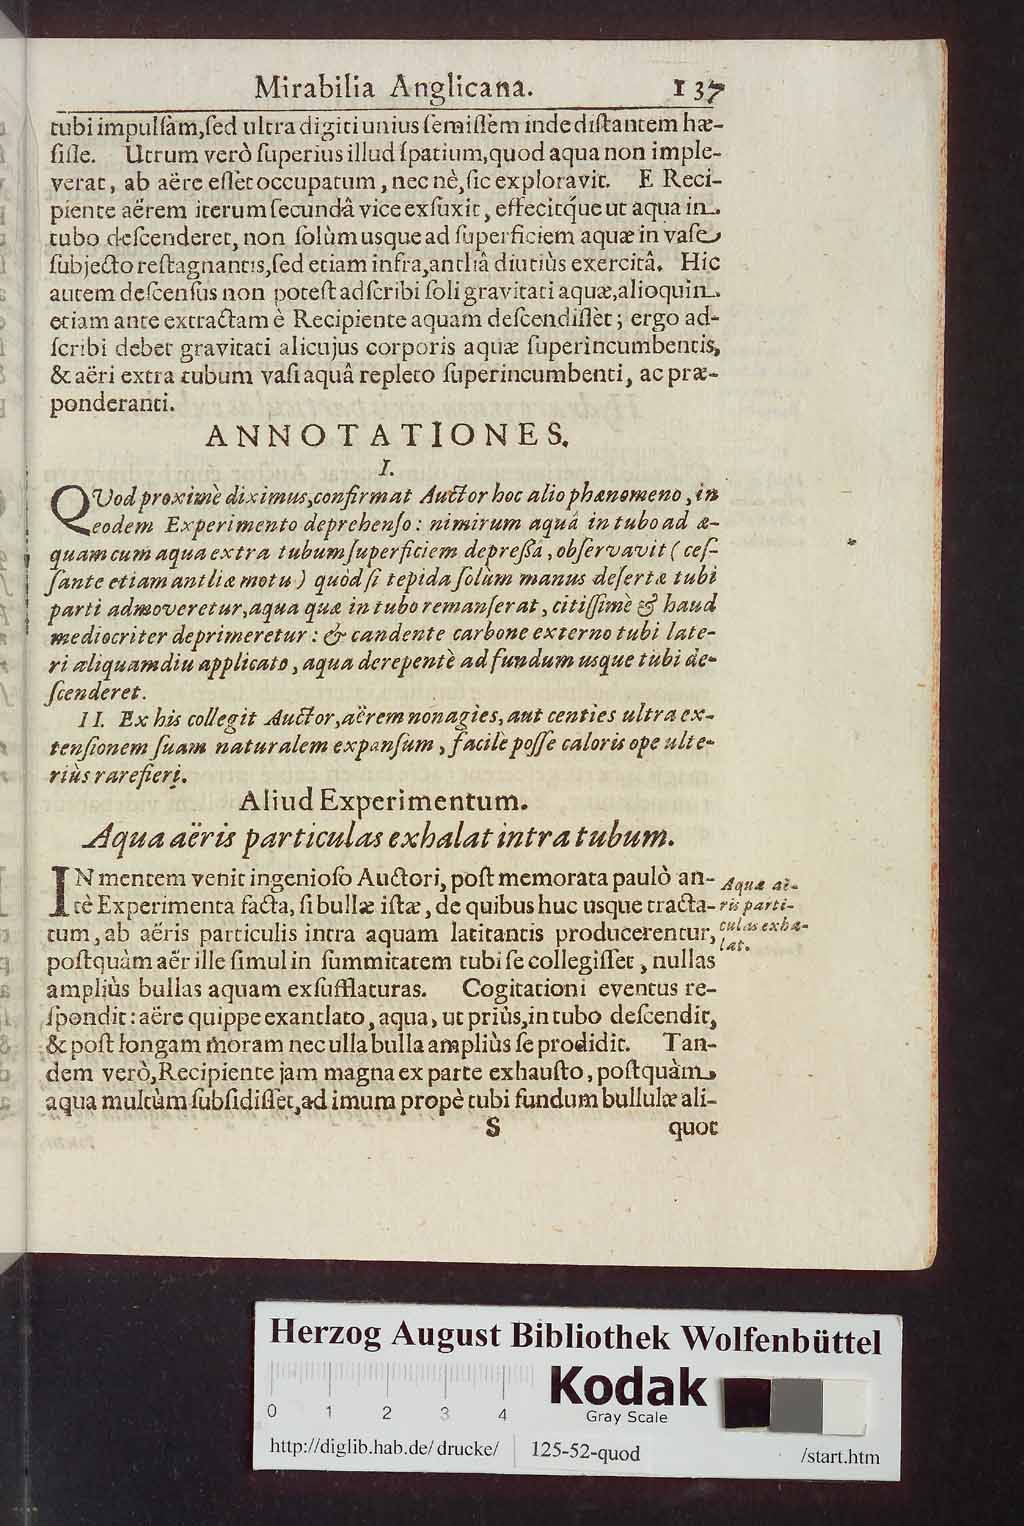 Mirabilia Anglicana. 137
tubi impulſam, ſed ultra digiti unius ſemiſſem inde diſtantem hæ-
ſiſſe. Utrum verò ſuperius illud ſpatium, quod aqua non imple-
verat, ab aëre eſſèt occupatum, nec nè, ſic exploravit. E Reci-
piente aërem iterum ſecundâ vice exſuxit, effecitq́ue ut aqua in
tubo deſcenderet, non ſolùm usque ad ſuperficiem aquæ in vaſe
ſubjecto reſtagnantis, ſed etiam infra, antliâ diutiùs exercitâ. Hic
autem deſcenſus non poteſt adſcribi ſoli gravitati aquæ, alioquin
etiam ante extractam è Recipiente aquam deſcendiſſèt; ergo ad-
ſcribi debet gravitati alicujus corporis aquæ ſuperincumbentis,
& aëri extra tubum vaſi aquâ repleto ſuperincumbenti, ac præ-
ponderanti.
ANNOTATIONES.
I.
QVod proximè diximus, confirmat Auctor hoc alio phænomeno, in
eodem Experimento deprehenſo: nimirum aquâ in tubo ad æ-
quam cum aqua extra tubum ſuperficiem depreſſâ, obſervavit (ceſ-
ſante etiam antliæ motu) quòd ſi tepida ſolùm manus deſertæ tubi
parti admoveretur, aqua quæ in tubo remanſerat, citiſſimè & haud
mediocriter deprimeretur: & candente carbone externo tubi late-
ri aliquamdiu applicato, aqua derepentè ad fundum usque tubi de-
ſcenderet.
II. Ex his collegit Auctor, aërem nonagies, aut centies ultra ex-
tenſionem ſuam naturalem expanſum, facile poſſe caloris ope ulte-
riùs rarefieri.
Aliud Experimentum.
Aqua aëris particulas exhalat intra tubum.
IN mentem venit ingenioſo Auctori, poſt memorata paulò an-
tè Experimenta facta, ſi bullæ iſtæ, de quibus huc usque tracta-
tum, ab aëris particulis intra aquam latitantis producerentur,
poſtquàm aër ille ſimul in ſummitatem tubi ſe collegiſſet, nullas
ampliùs bullas aquam exſufflaturas. Cogitationi eventus re-
ſpondit: aëre quippe exantlato, aqua, ut priùs, in tubo deſcendit,
& poſt longam moram nec ulla bulla ampliùs ſe prodidit. Tan-
dem verò, Recipiente jam magna ex parte exhauſto, poſtquàm
aqua multùm ſubſidiſſet, ad imum propè tubi fundum bullulæ ali-
S quot
Aqua aë-
ris parti-
culas exha-
lat.
Herzog August Bibliothek Wolfenbüttel
Kodak
Gray Scale
0 1 2 3 4
http://diglib.hab.de/drucke/ 125-52-quod /start.htm